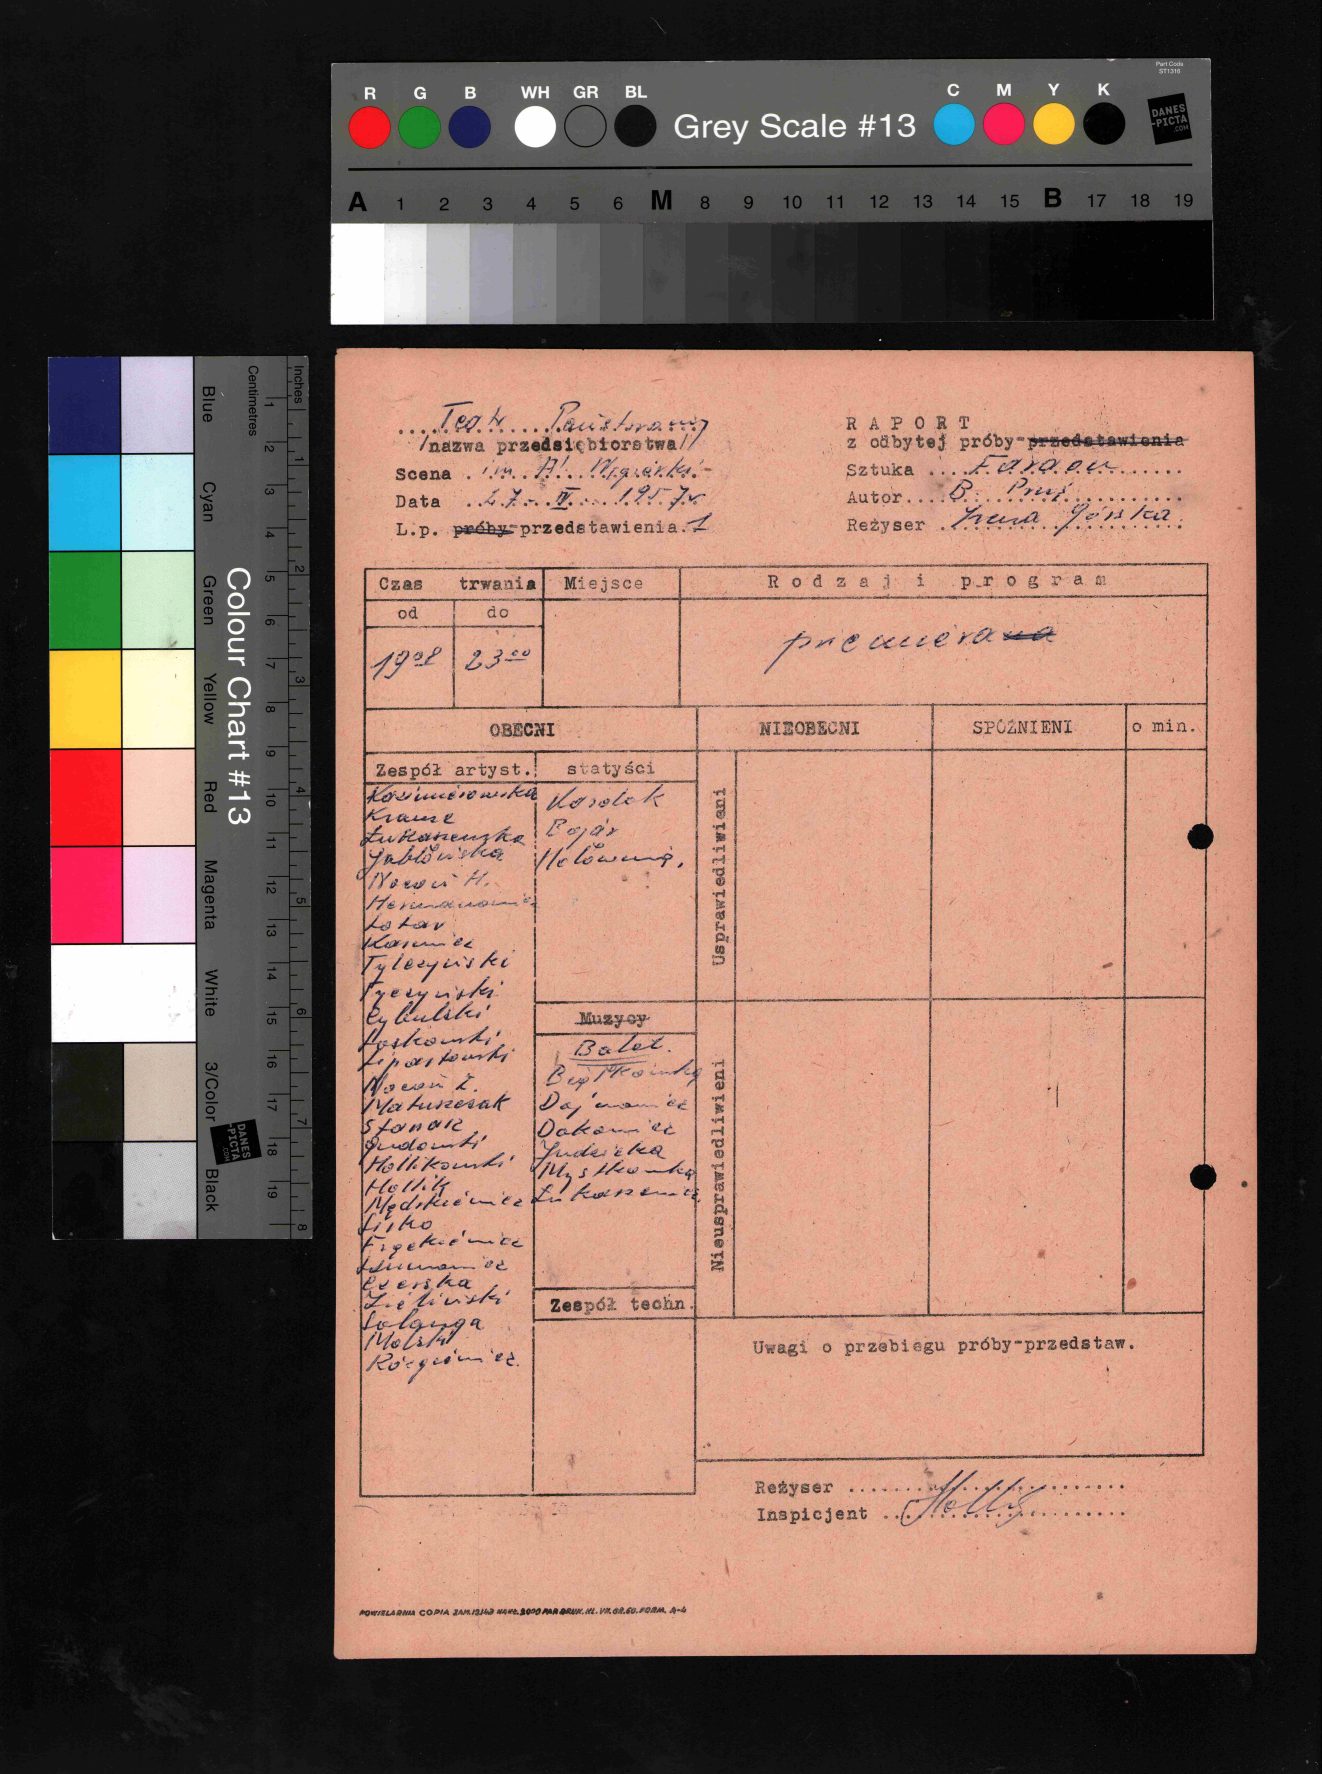 Part Code
ST1316
R G B WH GR BL
Grey Scale #13
C M Y K
DANES
-PICTA
.COM
A 1 2 3 4 5 6 M 8 9 10 11 12 13 14 15 B 17 18 19
Blue
Cyan
Green
Yellow
Red
Magenta
White
3/Color
Black
Colour Chart #13
Centimetres
Inches
1 2 3 4 5 6 7 8 9 10 11 12 13 14 15 16 17 18 19
1 2 3 4 5 6 7 8
DANES
-PICTA
.COM
Teatr Państwowy
/nazwa przedsiębiorstwa/
Scena im Al. Węgierki
Data 27. IV. 1957r
L.p. próby-przedstawienia 1
RAPORT
z odbytej próby-przedstawienia
Sztuka Faraon
Autor B. Prus
Reżyser Irena Górska
Czas trwania Miejsce Rodzaj i program
od do
19 23 00 premiera
OBECNI NIEOBECNI SPÓŹNIENI o min.
Zespół artyst. statyści
Kazimierowska
Krause
Łukaszewska
Jabłońska
Nocoń H.
Hermanowicz
Lotar
Karwicz
Tylczyński
Tyczyński
Cybulski
Laskowski
Lipartowski
Nocoń Z.
Matuszczak
Judowski
Hollikowski
Hollik
Mędrkiewicz
Lisko
Frąckiewicz
Czerska
Zieliński
Molski
Karolak
Bojar
Hołownia.
Muzycy
Balet.
Dojnowicz
Dakowicz
Judzicka
Mystkowska
Łukaszewicz
Zespół techn.
Usprawiedliwieni
Nieusprawiedliwieni
Uwagi o przebiegu próby-przedstaw.
Reżyser
Inspicjent Hollik
POWIELARNIA COPIA ZAM.13143 NAKŁ. 2000 PAP. DRUK. KL. VII. GR. 60. FORM. A-4